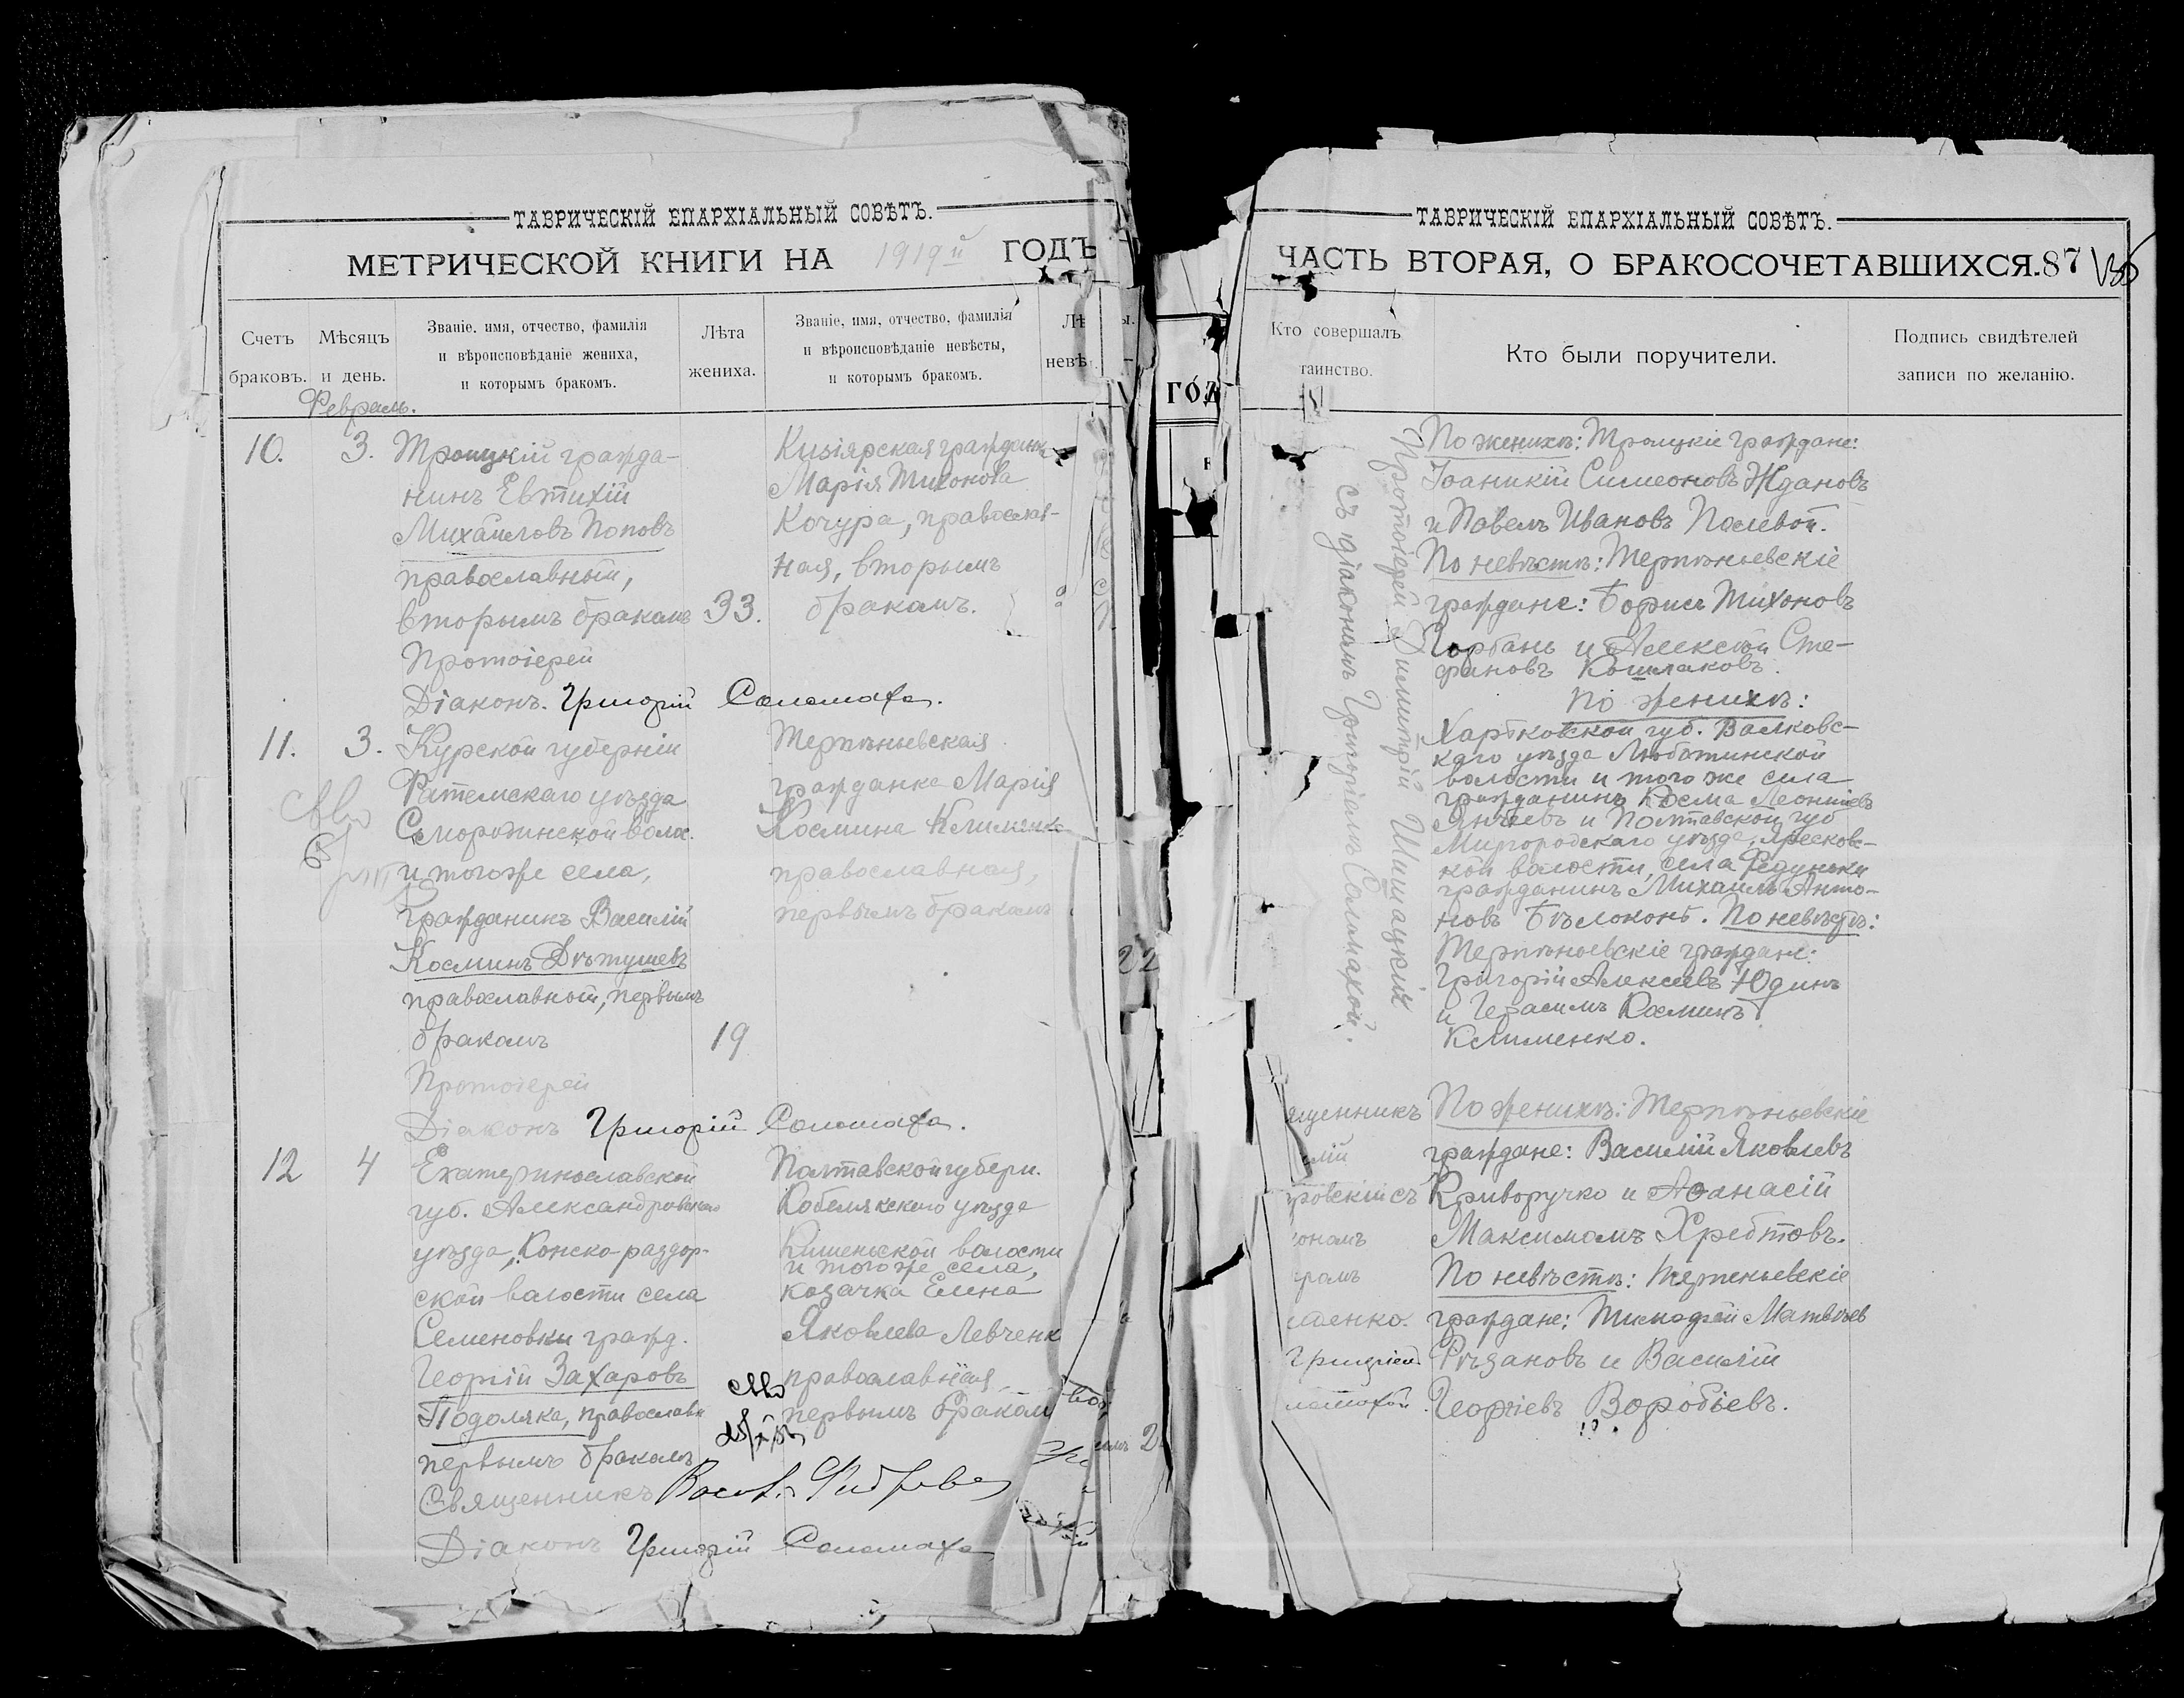 ТАВРИЧЕСКІЙ ЕПАРХІАЛЬНЫЙ СОВѢТЪ.
МЕТРИЧЕСКОЙ КНИГИ НА 1919й ГОДЪ
Счетъ браковъ.
Мѣсяцъ и день.
Званіе, имя, отчество, фамилія
и вѣроисповѣданіе жениха,
и которымъ бракомъ.
Лѣта жениха.
Званіе, имя, отчество, фамилія
и вѣроисповѣданіе невѣсты,
и которымъ бракомъ.
Лѣ
невѣ
Февраль.
10.
3.
Троицкій гражда-
нинъ Евтихій
Михаиловъ Поповъ
православный,
вторымъ бракомъ
33.
Протоіерей
Діаконъ. Григорій Саломаха.
Кизіярская гражданк
Марія Тихонова
Кочура, православ-
ная, вторымъ
бракомъ.
11.
3.
Курской губерніи
уѣзда
Смородинской волос.
и того же села,
Гражданинъ Василій
Косминъ Дѣтушевъ
православный, первымъ
бракомъ
19
Протоіерей
Діаконъ Григорій Саломаха.
Терпѣньевская
гражданка Марія
Космина Клименко
православная,
первымъ бракомъ
22
12
4
Екатеринославской
губ. Александровскаго
уѣзда, Конско-раздор-
ской волости села
Семеновки гражд.
Георгій Захаровъ
Подоляка, православн
первымъ бракомъ
Священникъ
Діаконъ Григорій Саломаха
Полтавской губерн.
Кобелякскаго уѣзда
Кишенской волости
и того же села,
козачка Елена
Яковлева Левченк
православная
первымъ браком
ГОД
ТАВРИЧЕСКІЙ ЕПАРХІАЛЬНЫЙ СОВѢТЪ.
ЧАСТЬ ВТОРАЯ, О БРАКОСОЧЕТАВШИХСЯ. 87
Кто совершалъ
таинство.
Кто были поручители.
Подпись свидѣтелей
записи по желанію.
Протоіерей Димитрій Шишацкій
съ діакономъ Григоріемъ Саломахой.
По женихѣ: Троицкіе граждане:
Іоаникій Симеоновъ Ждановъ
и Павелъ Ивановъ Полевой.
По невѣстѣ: Терпѣньевскіе
граждане: Борисъ Тихоновъ
Горбань и Алексѣй Сте-
фановъ Кошлаковъ.
По женихѣ:
Харьковской губ. Валковс-
каго уѣзда Люботинской
волости и того же села
гражданинъ Косма Леонтіевъ
и Полтавской губ
Миргородскаго уѣзда,
кой волости, села
гражданинъ Михаилъ Анто-
новъ Бѣлоконь. По невѣстѣ:
Терпѣньевскіе граждане:
Григорій Алексѣевъ Юдинъ
и Герасимъ Косминъ
Клименко.
ященникъ
лій
ровскій съ
кономъ
ромъ
аенко.
Григоріем
ломахой
По женихѣ: Терпѣньевскіе
граждане: Василій Яковлевъ
Криворучко и Аѳанасій
Максимомъ Хребтовъ.
По невѣстѣ: Терпеньевскіе
граждане: Тимофей Матвѣевъ
Рѣзановъ и Василій
Георгіевъ Воробьевъ.